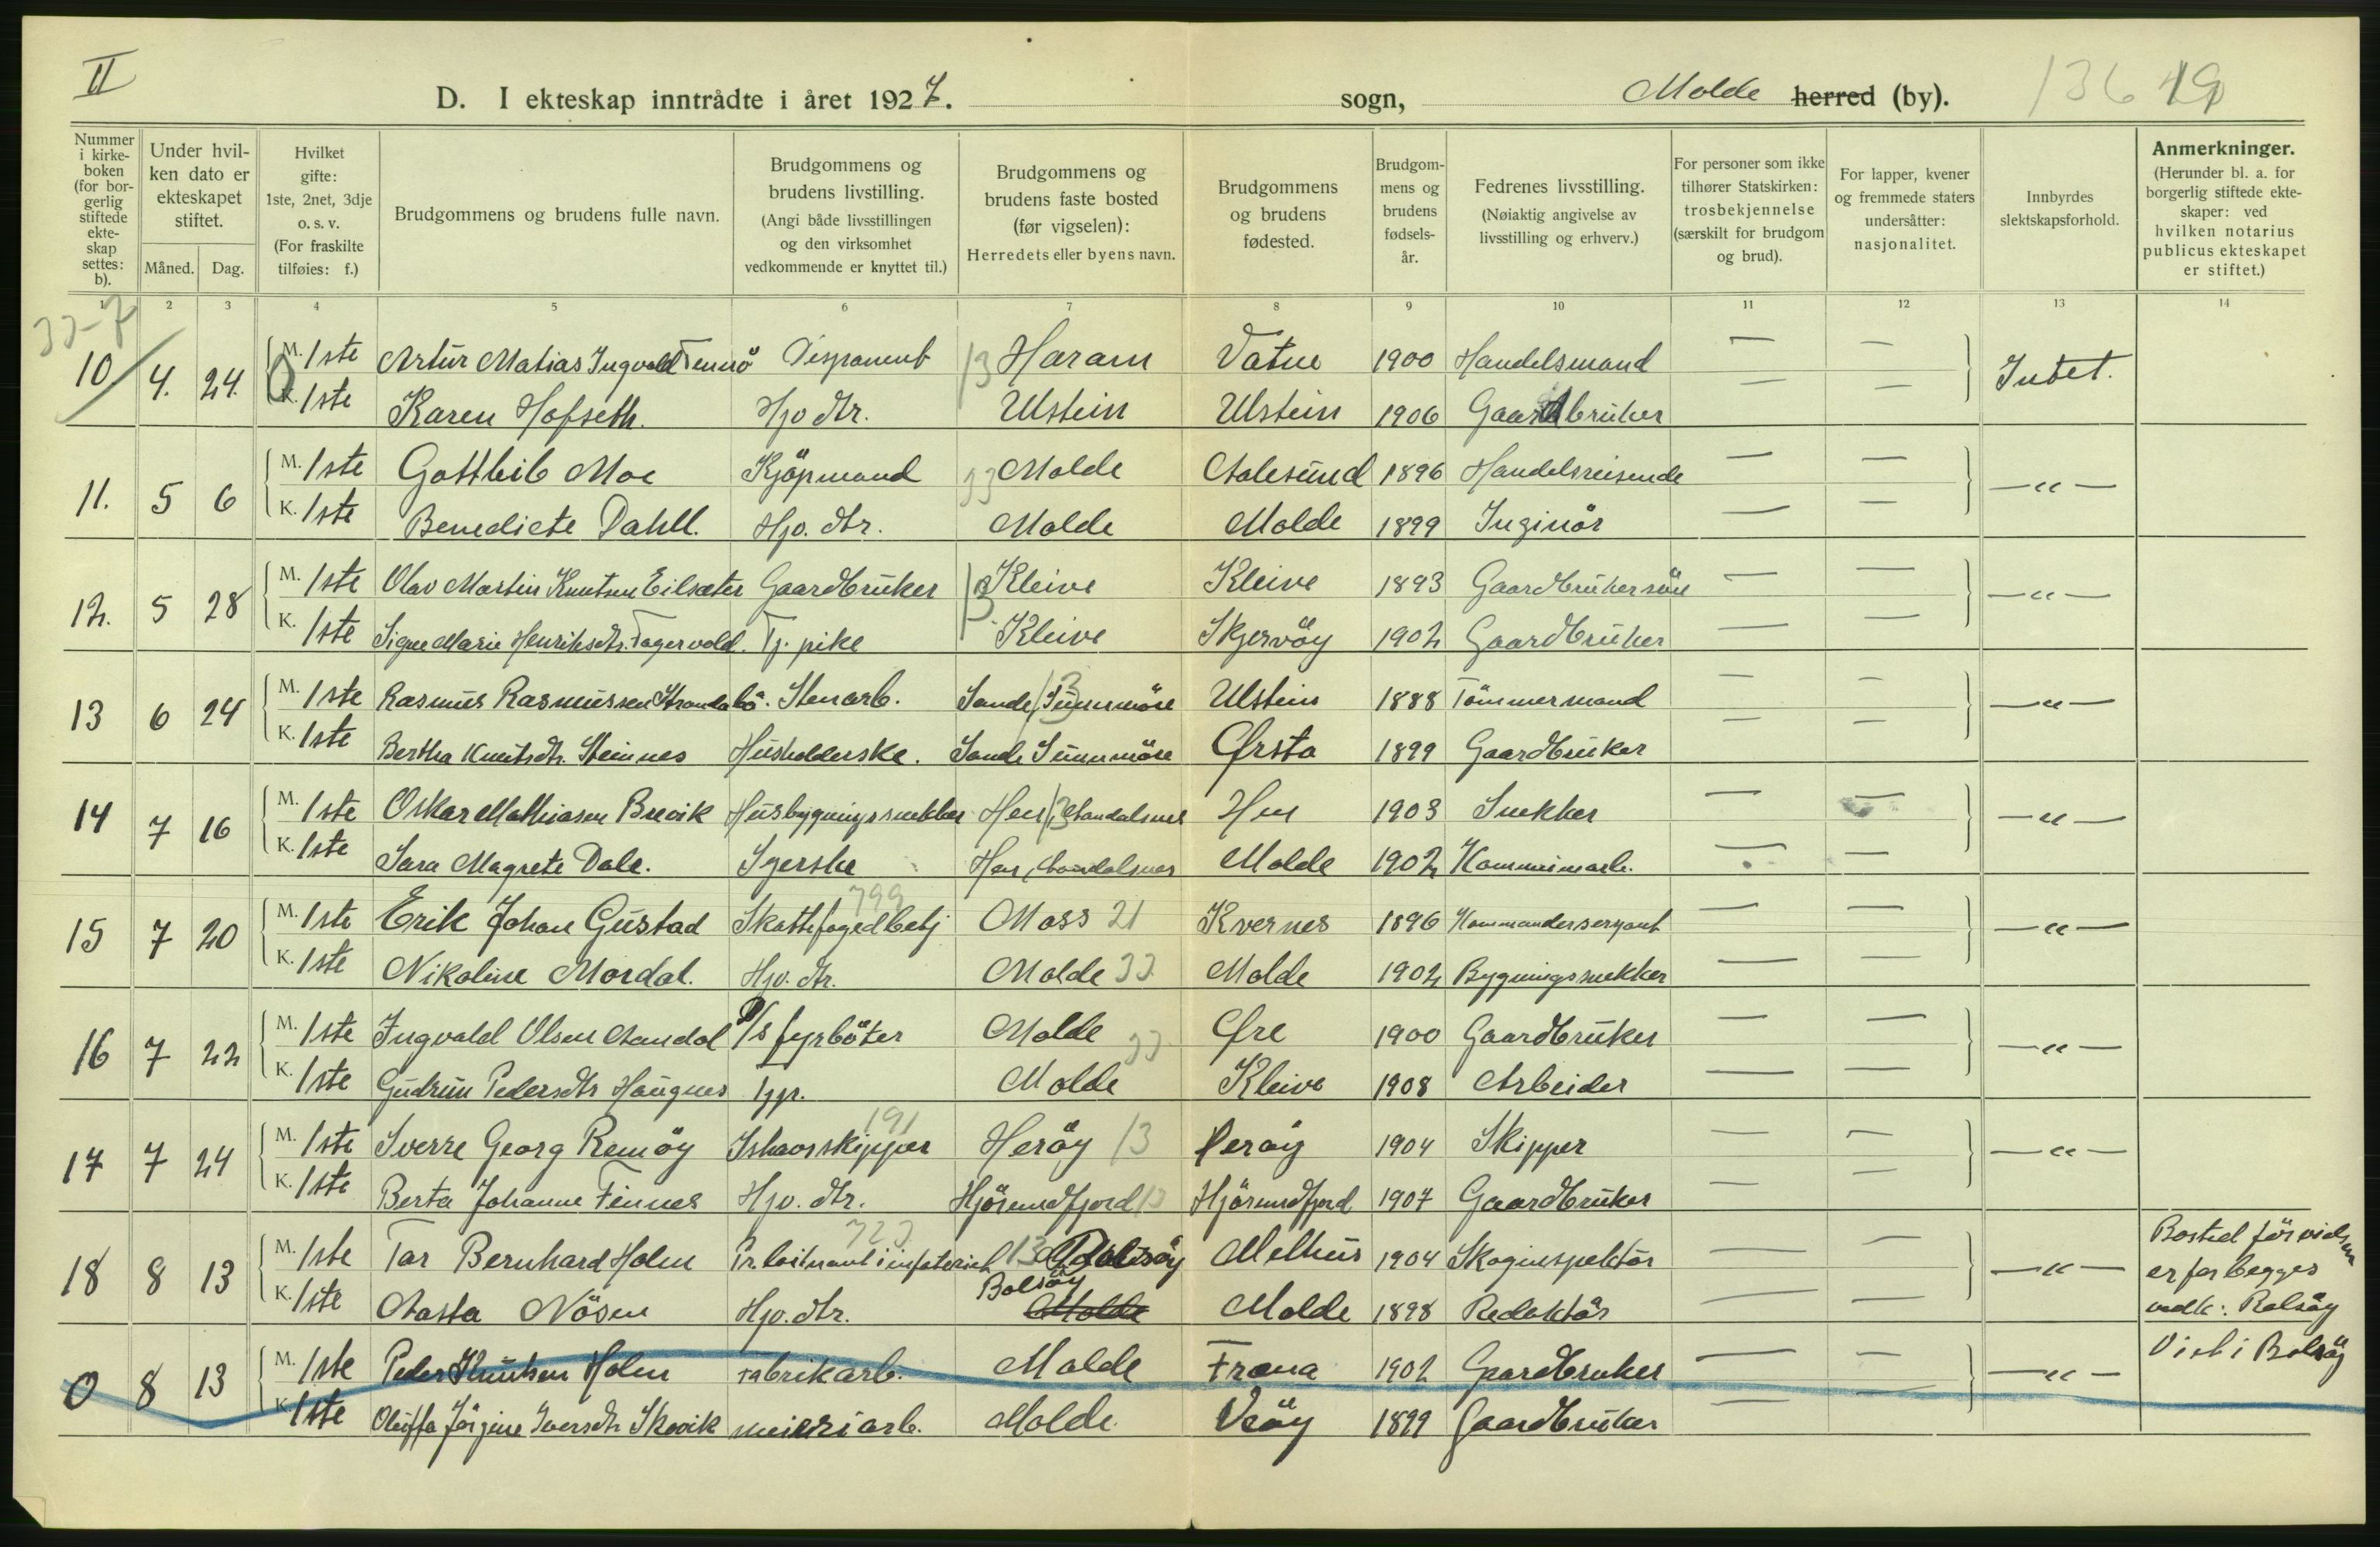 II
D. I ekteskap inntrådte i året 1927. sogn, Molde herred (by). 136 19
Nummer i kirkeboken (for borgerlig stiftede ekteskap settes: b).
Under hvilken dato er ekteskapet stiftet.
Måned. Dag.
Hvilket gifte: 1ste, 2net, 3dje o. s. v. (For fraskilte tilføies: f.)
Brudgommens og brudens fulle navn.
Brudgommens og brudens livstilling. (Angi både livsstillingen og den virksomhet vedkommende er knyttet til.)
Brudgommens og brudens faste bosted (før vigselen): Herredets eller byens navn.
Brudgommens og brudens fødested.
Brudgommens og brudens fødselsår.
Fedrenes livsstilling. (Nøiaktig angivelse av livsstilling og erhverv.)
For personer som ikke tilhører Statskirken: trosbekjennelse (særskilt for brudgom og brud).
For lapper, kvener og fremmede staters undersåtter: nasjonalitet.
Innbyrdes slektskapsforhold.
Anmerkninger. (Herunder bl. a. for borgerlig stiftede ekteskaper: ved hvilken notarius publicus ekteskapet er stiftet.)
1 2 3 4 5 6 7 8 9 10 11 12 13 14
10 4. 24. M. 1ste Artur Matias Ingvald Tennö Disponent 13 Haram Vatne 1900 Handelsmand — — Intet.
K. 1ste Karen Hofseth. Hjv dtr. Ulstein Ulstein 1906 Gaardbruker — —
11. 5 6 M. 1ste Gottleib Moe Kjöpmand 33 Molde Aalesund 1896 Handelsreisende — — — " —
K. 1ste Benedicte Dahll. Hjv. dtr. Molde Molde 1899 Inginör — —
12. 5 28 M. 1ste Olav Martin Knutsen Eilsæter Gaardbruker 13 Kleive Kleive 1893 Gaardbrukersön — — — " —
K. 1ste Signe Marie Henriksdtr. Fagervold. Tj. pike Kleive Skjervöy 1902 Gaardbruker — —
13 6 24 M. 1ste Rasmus Rasmussen Strandabö. Stenarb. Sande, Sunnmöre 13 Ulstein 1888 Tömmermand — — — " —
K. 1ste Bertha Knutsdtr. Steinnes Husholderske. Sande Sunnmöre Ørsta 1899 Gaardbruker — —
14 7 16 M. 1ste Oskar Mathiasen Brevik Husbygningssnekker Hen, 13 Aandalsnes Hen 1903 Snekker — — — " —
K. 1ste Sara Magrete Dale. Syerske Hen, Aandalsnes Molde 1902 Kommunearb. — —
799
15 7 20 M. 1ste Erik Johan Gustad Skattefogedbetj Moss 21 Kvernes 1896 Kommandersergant — — — " —
K. 1ste Nikoline Mordal. Hjv. dtr. Molde 33 Molde 1902 Bygningssnekker — —
16 7 22 M. 1ste Ingvald Olsen Aandal D/s fyrböter Molde 33 Øre 1900 Gaardbruker — — — " —
K. 1ste Gudrun Pedersdtr Haugnes Tjp. Molde Kleive 1908 Arbeider — —
191
17 7 24 M. 1ste Sverre Georg Remöy Ishavsskipper Heröy 13 Heröy 1904 Skipper — — — " —
K. 1ste Berta Johanne Finnes Hjv. dtr. Hjörundfjord 13 Hjörundfjord 1907 Gaardbruker — —
723
18 8 13 M. 1ste Tor Bernhard Holm Pr. loitnant i infateriet 13 Bolsöy Melhus 1904 Skoginspektör — — — " — Bosted för vielsen
K. 1ste Aasta Nösen Hjv. dtr. Bolsöy Molde Molde 1898 Redaktör — — er for begges vedk: Bolsöy
0 8 13 M. 1ste Peder Knutsen Holm Fabrikarb. Molde Fræna 1902 Gaardbruker — — — " — Viet i Bolsöy
K. 1ste Oluffa Jörgine Iversdtr Skovik meieriarb. Molde Veöy 1899 Gaardbruker — —